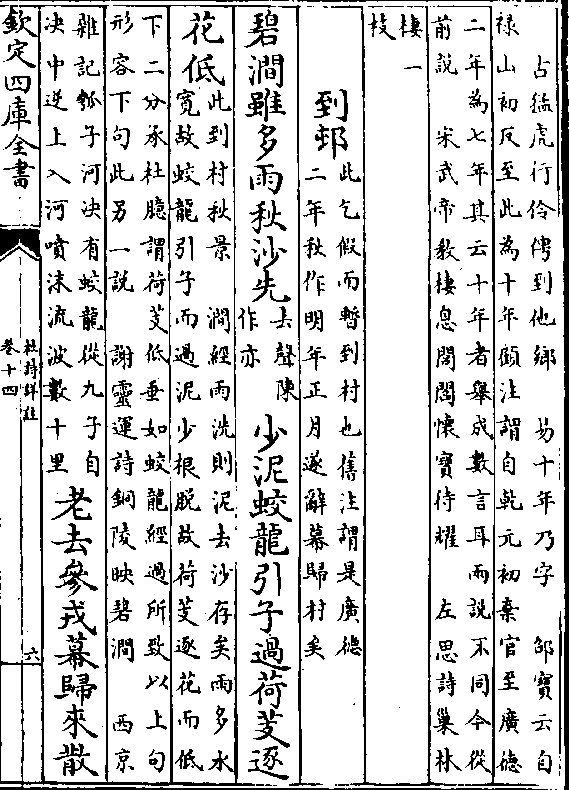 占猛虎行伶俜到他鄉　易十年乃字　邵寳云自
禄山初反至此為十年顧注謂自乾元初棄官至廣德
二年為七年其云十年者舉成數言耳兩說不同今從
前說　宋武帝教棲息閭閻懷寳待耀　左思詩巢林
棲一
枝
到邨
此乞假而暫到村也舊注謂是廣德
二年秋作明年正月遂辭幕歸村矣
碧澗雖多雨秋沙先
去聲陳
作亦
少泥蛟龍引子過荷芰逐
花低
此到村秋景　澗經雨洗則泥去沙存矣雨多水
寛故蛟龍引子而過泥少根脱故荷芰逐花而低
下二分承杜臆謂荷芰低垂如蛟龍經過所致以上句
形容下句此另一說　謝靈運詩銅陵映碧澗　西京
雜記瓠子河決有蛟龍從九子自
決中逆上入河噴沫流波數十里
老去參戎幕歸來散
欽定四庫全書
杜詩詳註
卷十四
六